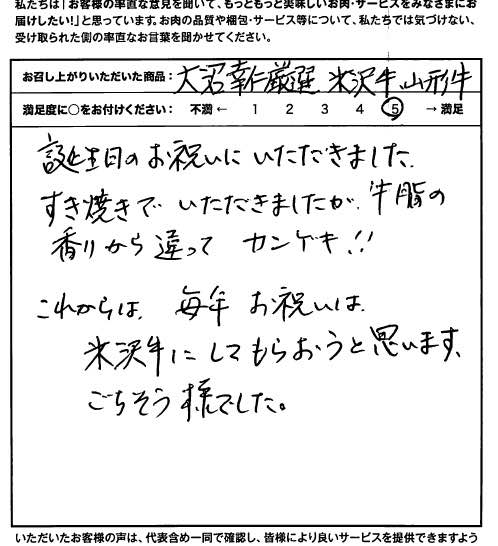 私たちは「お客様の率直な意見を聞いて、もっともっと美味しいお肉・サービスをみなさまにお
届けしたい!」と思っています。お肉の品質や梱包・サービス等について、私たちでは気づけない、
受け取られた側の率直なお言葉を聞かせてください。
お召し上がりいただいた商品： 大沼幸仁厳選 米沢牛 山形牛
満足度に○をお付けください： 不満 ← 1 2 3 4 5 → 満足
誕生日のお祝いにいただきました。
すき焼きでいただきましたが、牛脂の
香りから違って カンゲキ!!
これからは、毎年 お祝いは、
米沢牛にしてもらおうと思います、
ごちそう様でした。
いただいたお客様の声は、代表含め一同で確認し、皆様により良いサービスを提供できますよう